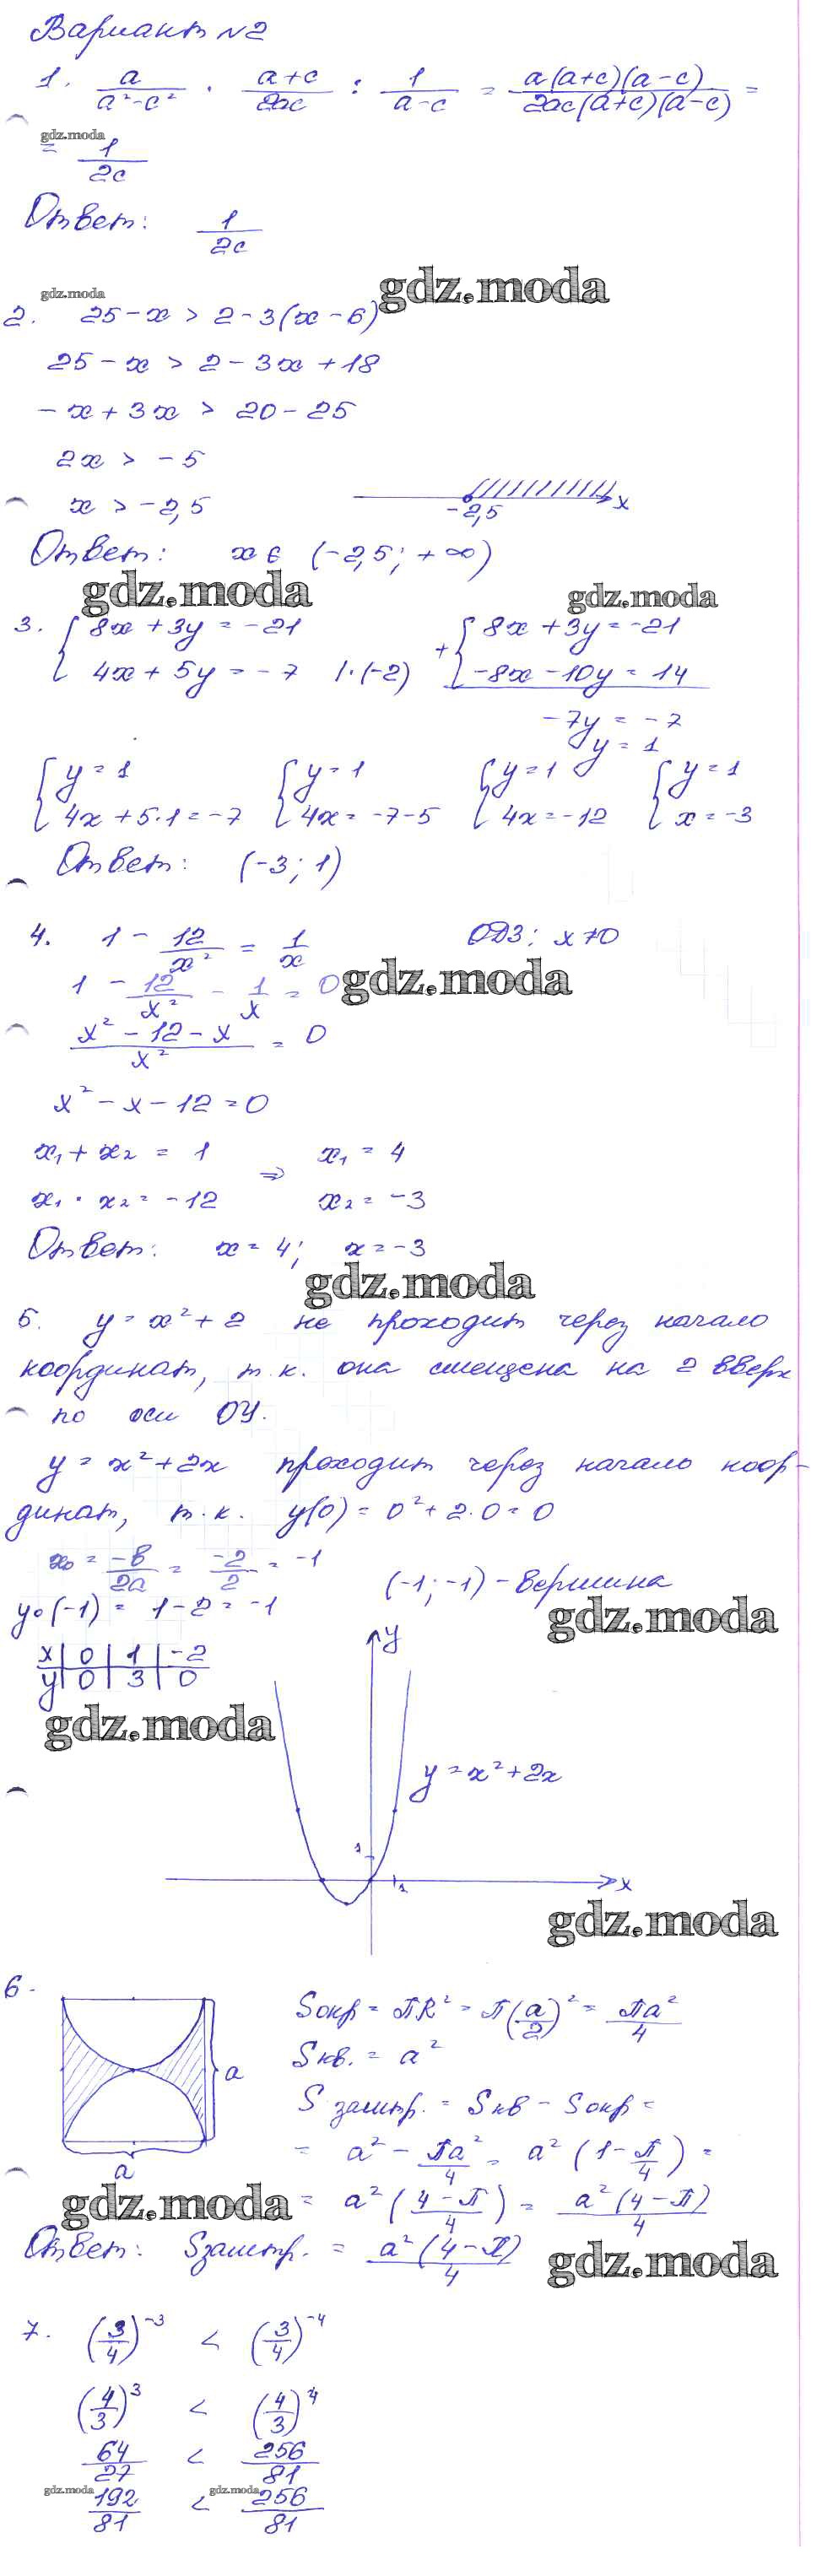 Вариант №2
1. a/(a²-c²) · (a+c)/(2ac) : 1/(a-c) = a(a+c)(a-c)/(2ac(a+c)(a-c)) =
gdz.moda
= 1/(2c)
Ответ: 1/(2c)
gdz.moda
gdz.moda
2. 25-x > 2-3(x-6)
25-x > 2-3x+18
-x+3x > 20-25
2x > -5
x > -2,5
-2,5 x
Ответ: x ∈ (-2,5; +∞)
gdz.moda
gdz.moda
3. { 8x+3y = -21
4x+5y = -7 |·(-2)
+ { 8x+3y = -21
-8x-10y = 14
-7y = -7
y = 1
{ y = 1 { y = 1 { y = 1 { y = 1
4x+5·1 = -7 4x = -7-5 4x = -12 x = -3
Ответ: (-3; 1)
4. 1 - 12/x² = 1/x ОДЗ: x≠0
1 - 12/x² - 1/x = 0
gdz.moda
(x²-12-x)/x² = 0
x²-x-12 = 0
x₁+x₂ = 1 ⇒ x₁ = 4
x₁·x₂ = -12 x₂ = -3
Ответ: x = 4; x = -3
gdz.moda
5. y = x²+2 не проходит через начало
координат, т.к. она смещена на 2 вверх
по оси OY.
y = x²+2x проходит через начало коор-
динат, т.к. y(0) = 0²+2·0 = 0
x₀ = -b/2a = -2/2 = -1
(-1; -1) - вершина
y₀(-1) = 1-2 = -1
gdz.moda
x | 0 | 1 | -2
y | 0 | 3 | 0
gdz.moda
y
y = x²+2x
1
1
x
gdz.moda
6.
a
a
Sокр = πR² = π(a/2)² = πa²/4
Sкв. = a²
Sзаштр. = Sкв - Sокр =
= a² - πa²/4 = a²(1-π/4) =
gdz.moda
= a²((4-π)/4) = a²(4-π)/4
Ответ: Sзаштр. = a²(4-π)/4
gdz.moda
7. (3/4)⁻³ < (3/4)⁻⁴
(4/3)³ < (4/3)⁴
64/27 < 256/81
gdz.moda gdz.moda
192/81 < 256/81